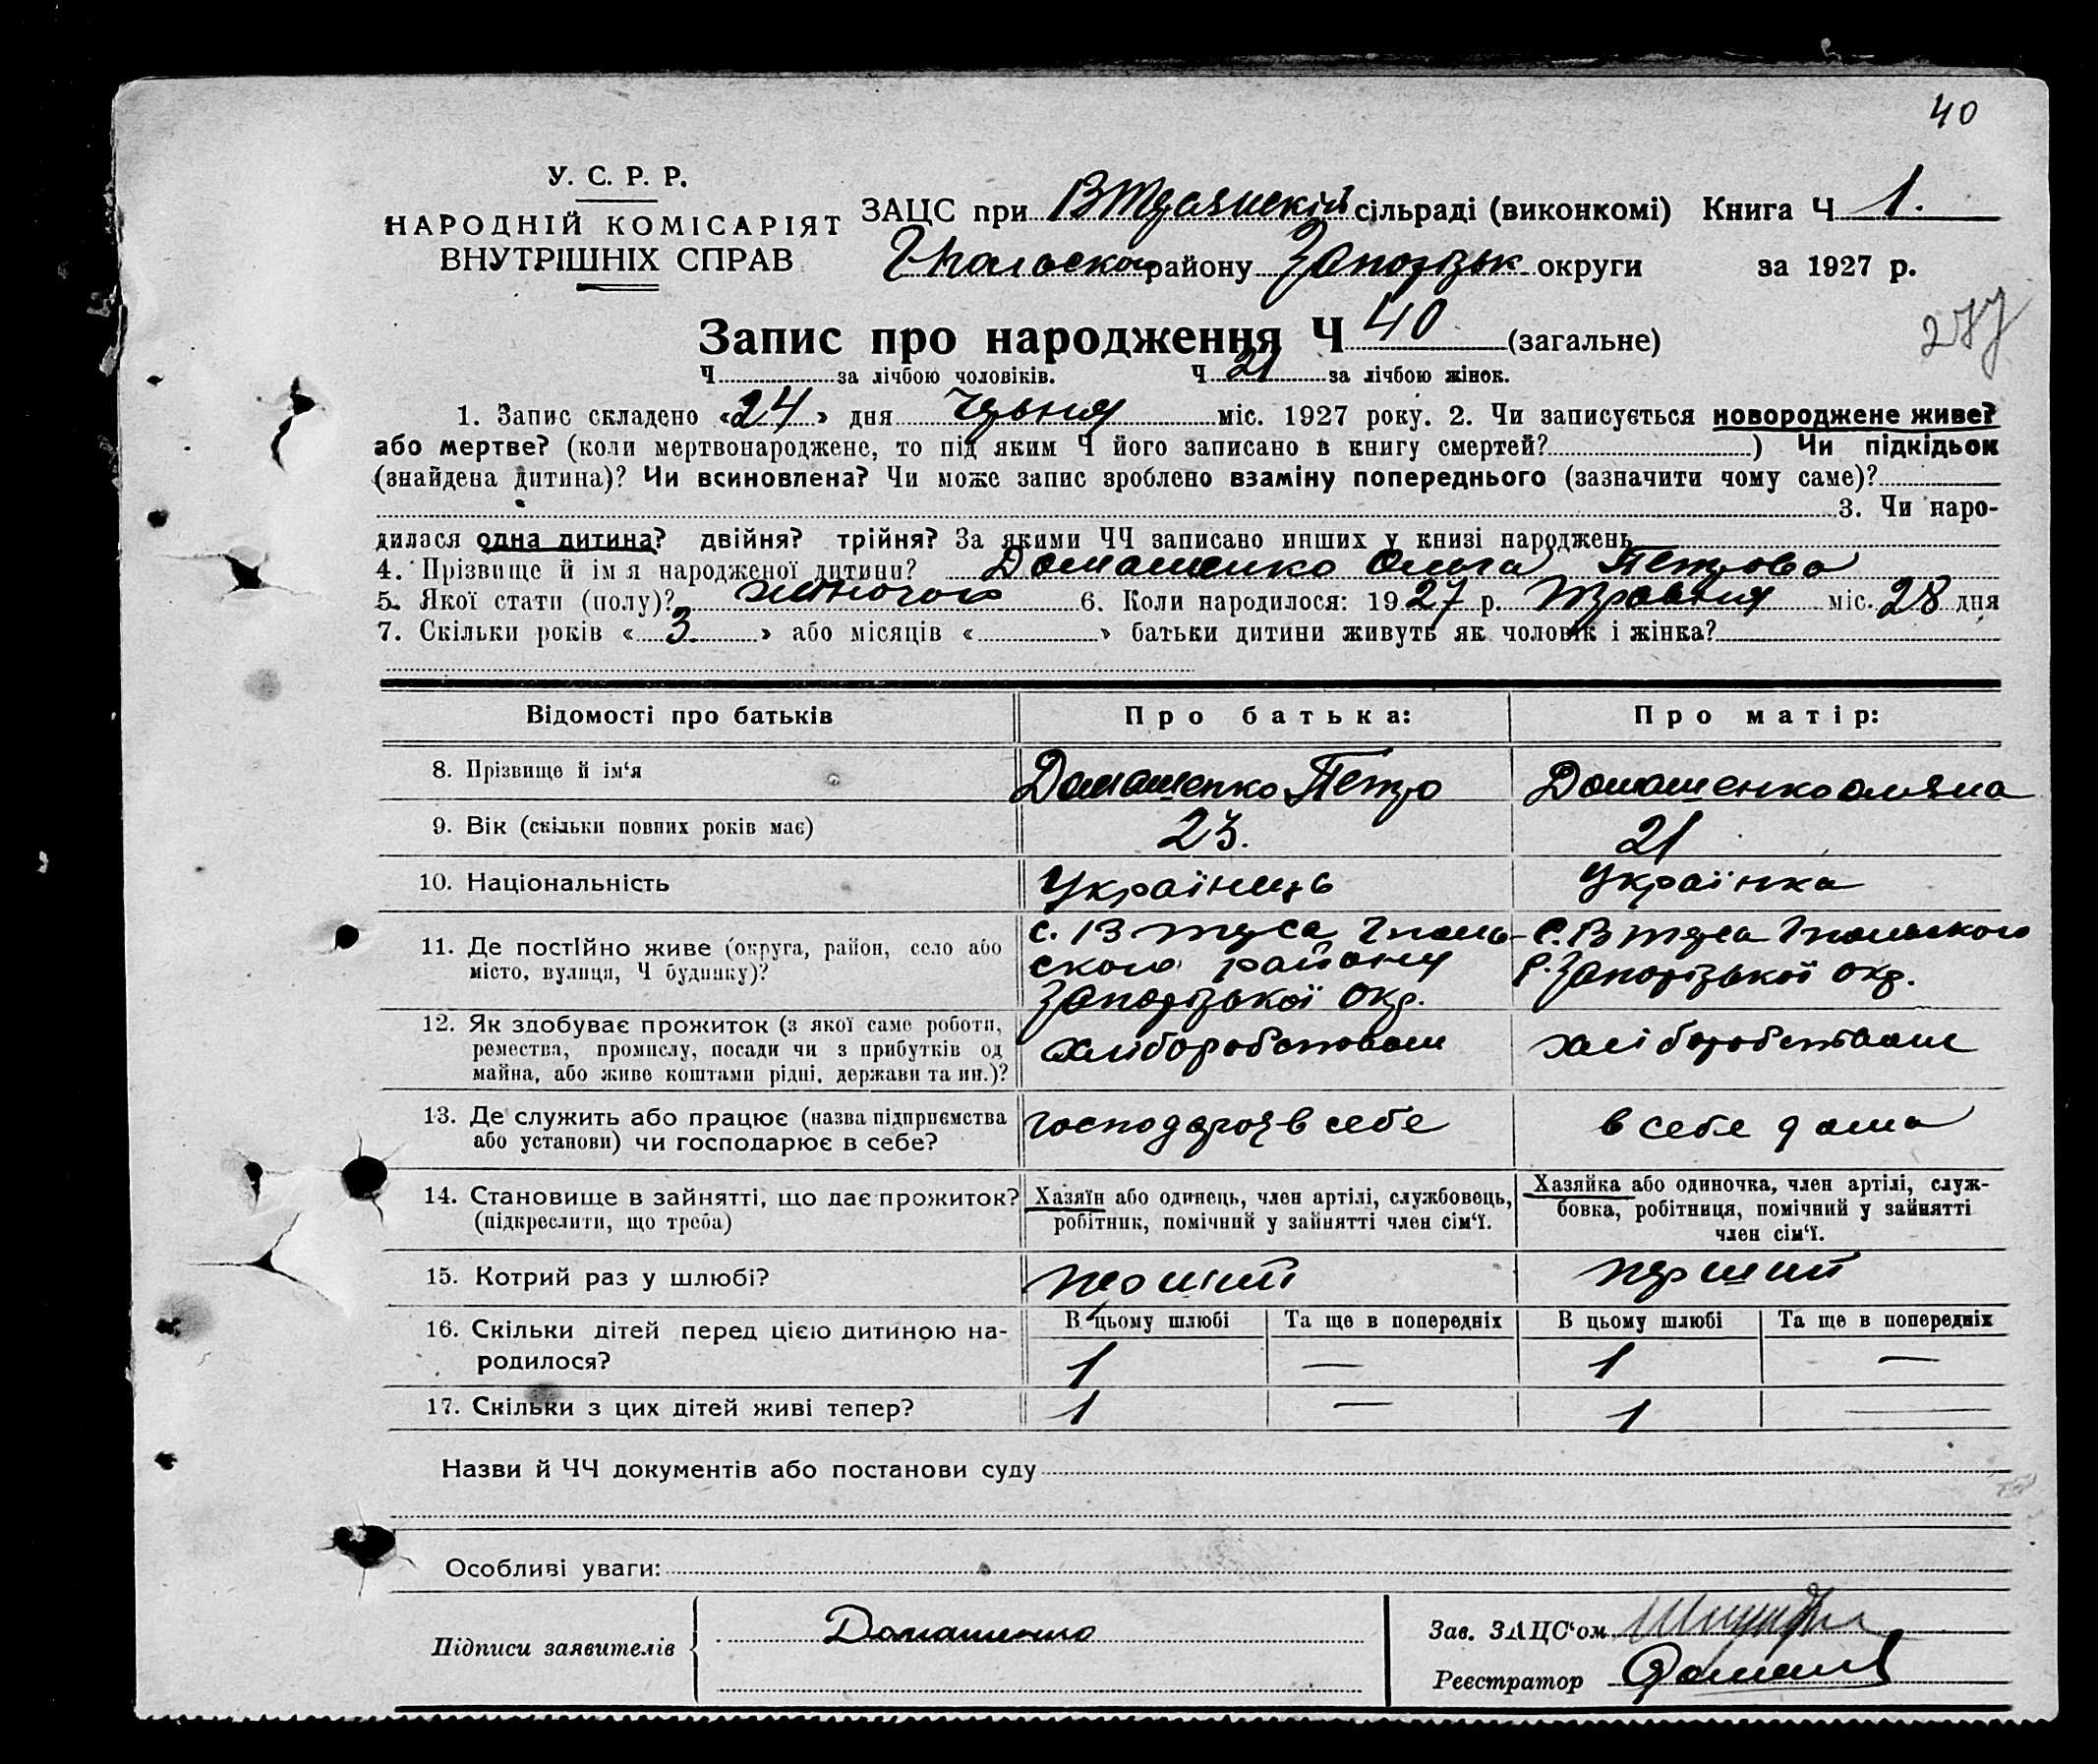 40
У. С. Р. Р.
НАРОДНІЙ КОМІСАРІЯТ
ВНУТРІШНІХ СПРАВ
ЗАЦС при сільраді (виконкомі) Книга Ч 1.
району Запорізьк округи за 1927 р.
277
Запис про народження Ч 40 (загальне)
Ч за лічбою чоловіків. Ч 21 за лічбою жінок.
1. Запис складено «24» дня Червня міс. 1927 року. 2. Чи записується новороджене живе?
або мертве? (коли мертвонароджене, то під яким Ч його записано в книгу смертей? ) Чи підкідьок
(знайдена дитина)? Чи всиновлена? Чи може запис зроблено взаміну попереднього (зазначити чому саме)?
3. Чи наро-
дилася одна дитина? двійня? трійня? За якими ЧЧ записано инших у книзі народжень
4. Прізвище й ім я народженої дитини? Домашенко Ольга Петрова
5. Якої стати (полу)? жіночого 6. Коли народилося: 1927 р. травня міс. 28 дня
7. Скільки років «3» або місяців « » батьки дитини живуть як чоловік і жінка?
Відомості про батьків Про батька: Про матір:
8. Прізвище й ім‘я Домашенко Петро Домашенко
9. Вік (скільки повних років має) 23. 21
10. Національність Українець Українка
11. Де постійно живе (округа, район, село або місто, вулиця, Ч будинку)?
с. В
ского району
Запорізької окр.
с. В
р. Запорізької окр.
12. Як здобуває прожиток (з якої саме роботи,
ремества, промислу, посади чи з прибутків од
майна, або живе коштами рідні, держави та ин.)?
хліборобством хліборобством
13. Де служить або працює (назва підприємства
або установи) чи господарює в себе?
в себе в себе дома
14. Становище в зайнятті, що дає прожиток?
(підкреслити, що треба)
Хазяїн або одинець, член артілі, службовець,
робітник, помічний у зайнятті член сім‘ї.
Хазяйка або одиночка, член артілі, служ-
бовка, робітниця, помічний у зайнятті
член сім‘ї.
15. Котрий раз у шлюбі? перший
16. Скільки дітей перед цією дитиною на-
родилося?
В цьому шлюбі Та ще в попередніх В цьому шлюбі Та ще в попередніх
1 — 1 —
17. Скільки з цих дітей живі тепер? 1 — 1 —
Назви й ЧЧ документів або постанови суду
Особливі уваги:
Підписи заявителів Домашенко
Зав. ЗАЦС‘ом
Реєстратор